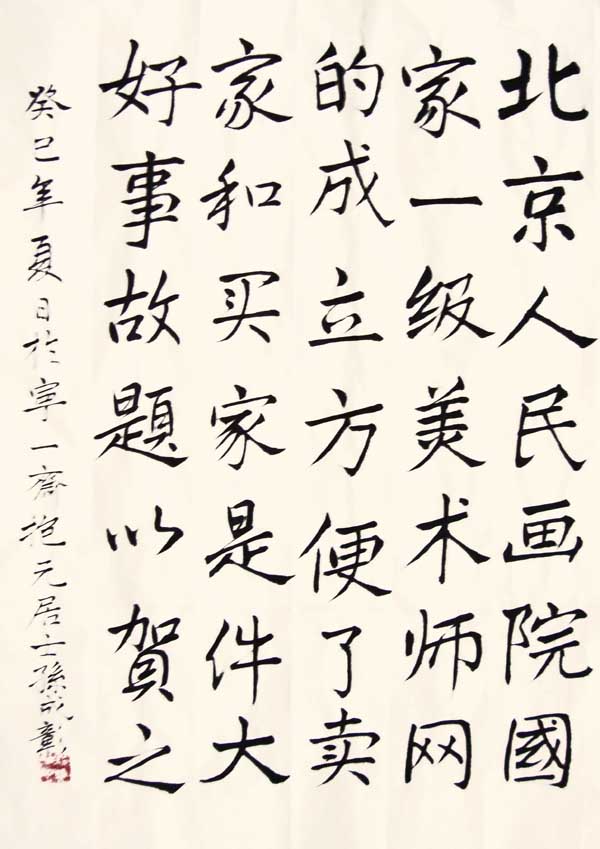 北京人民画院國
家一级美术师网
的成立方便了卖
家和买家是件大
好事故題以賀之
癸巳年夏日於宇一齋抱元居士孫